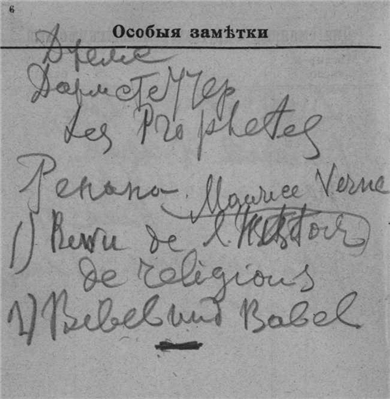 6
Особыя замѣтки
Дармстеттер
Les Prophetes
Ренана Maurice Verne
1) Revu de l'Histoire
de religious
2) Bibel und Babel